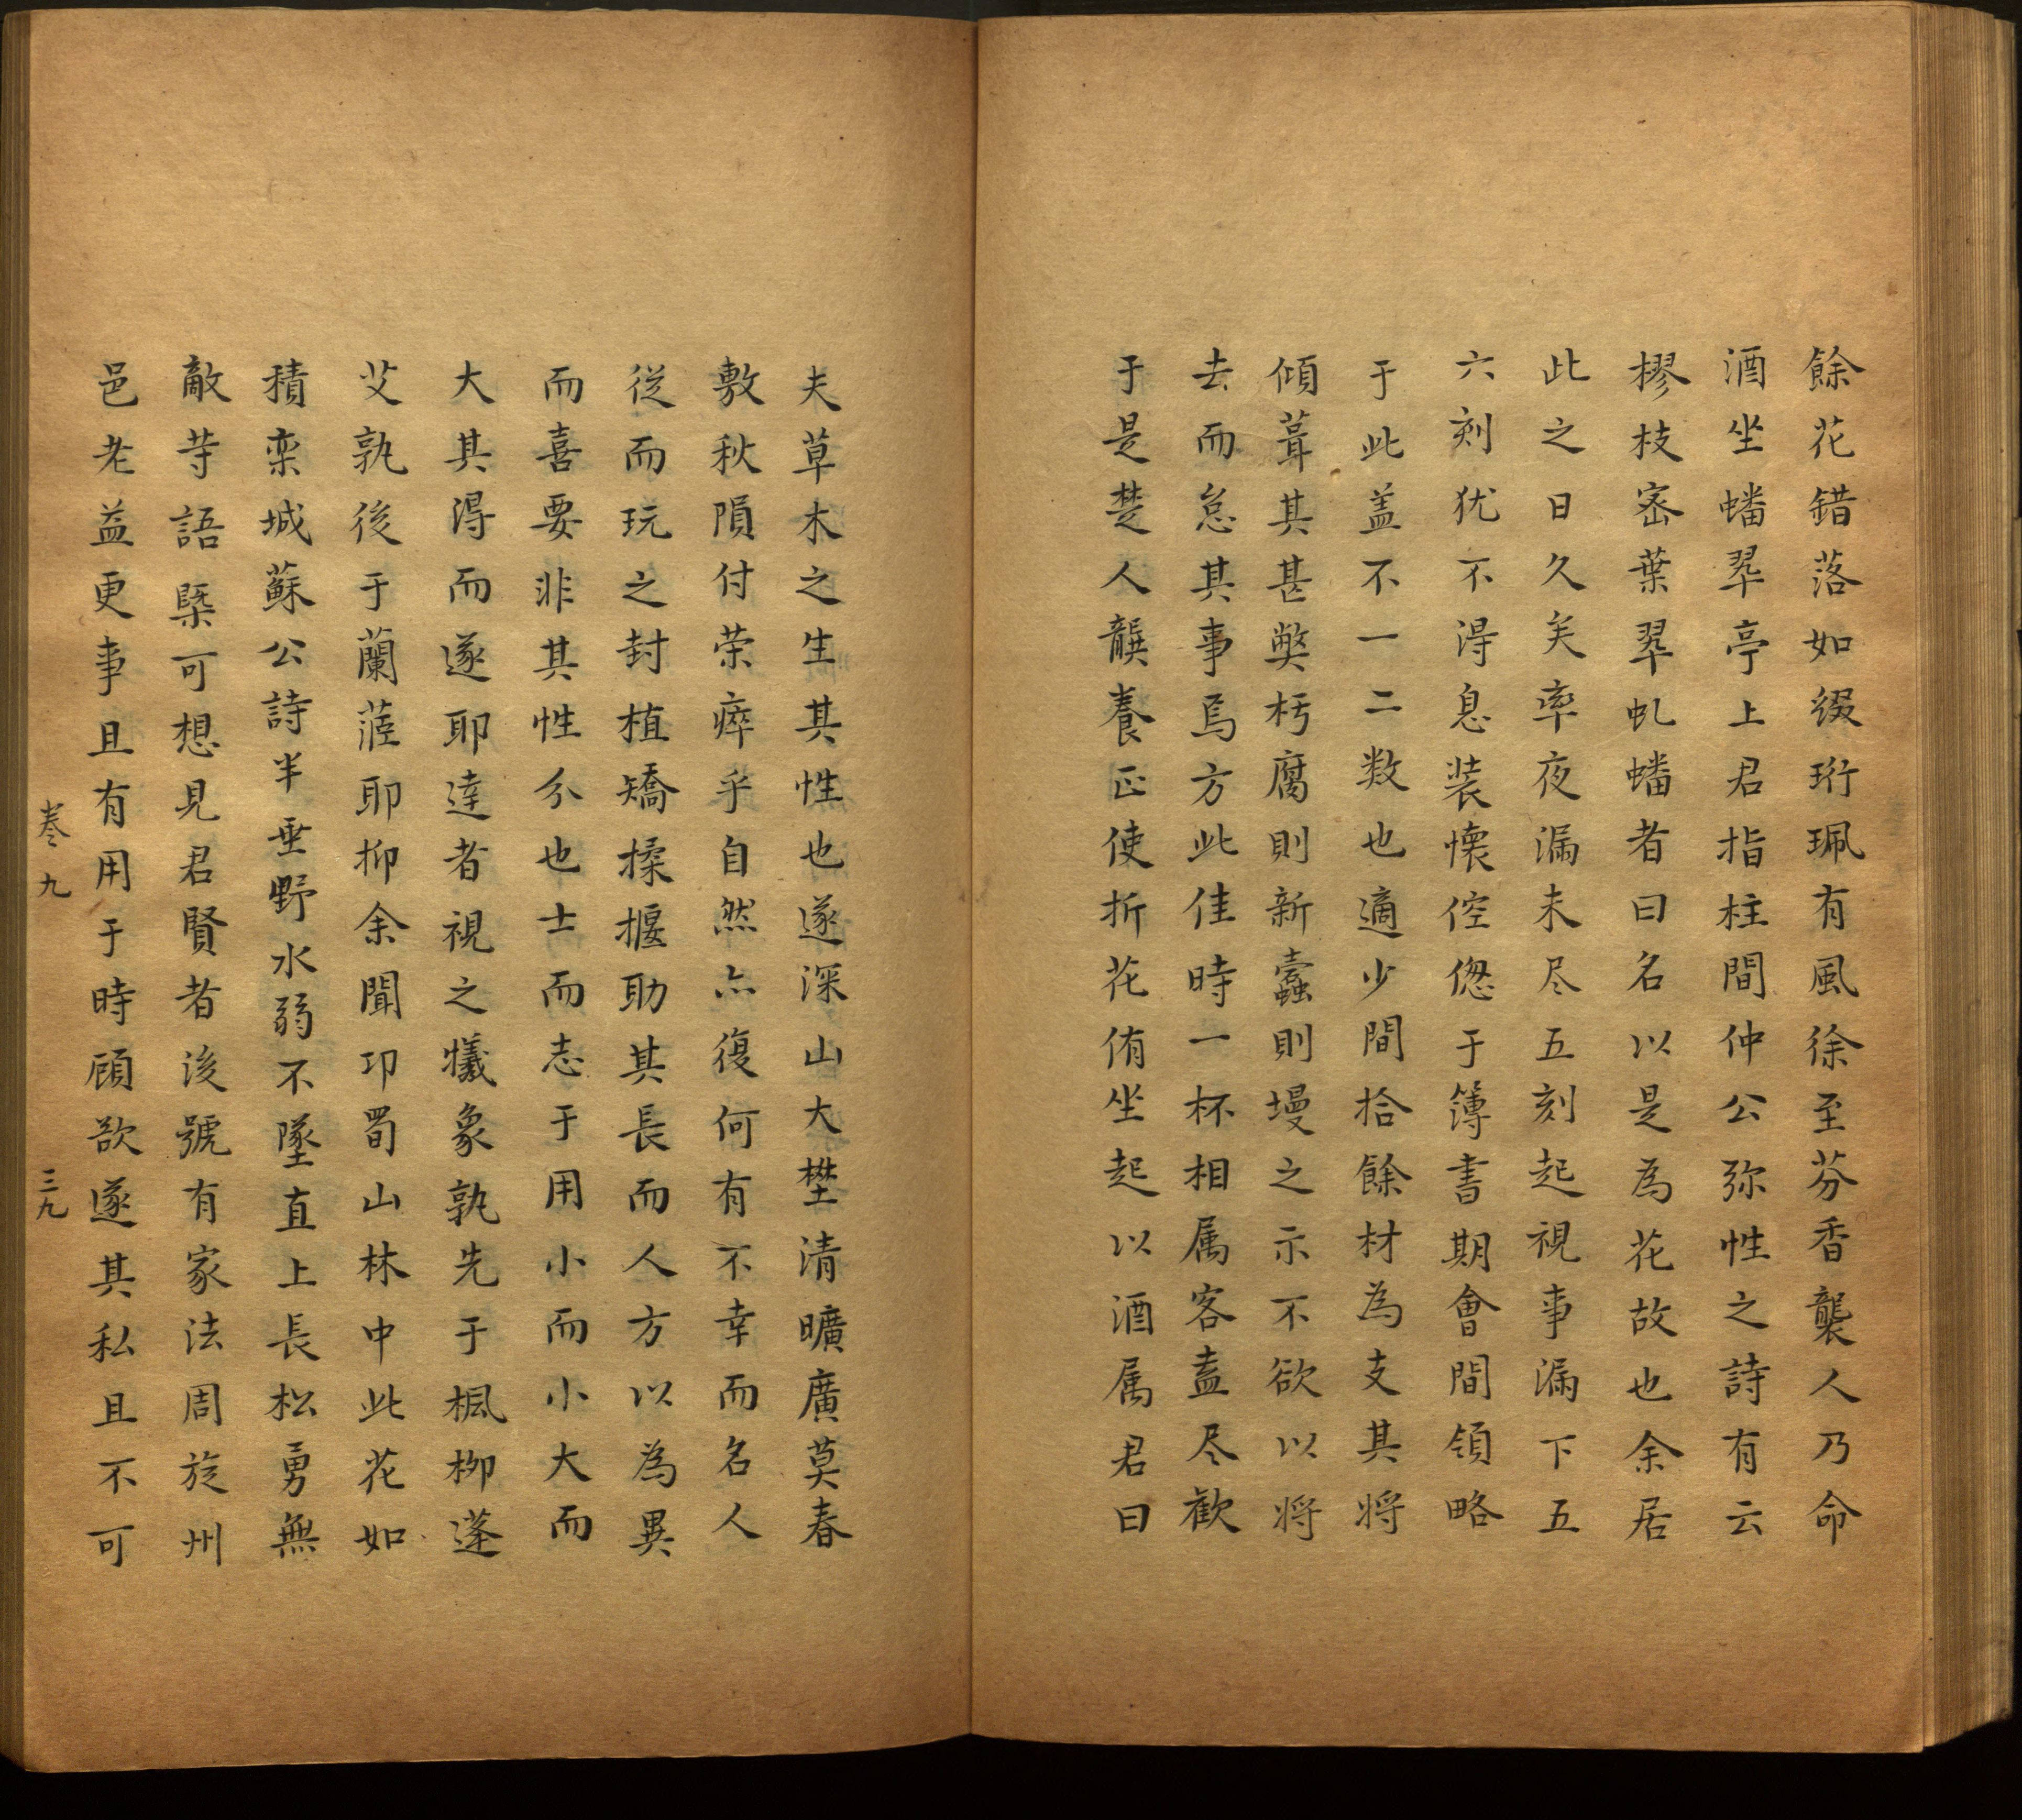 餘花錯落如缀珩珮有風徐至芬香襲人乃命
酒坐蟠翠亭上君指柱間仲公弥性之詩有云
樛枝宻葉翠虬蟠者曰名以是為花故也余居
此之日久矣率夜漏未尽五刻起視事漏下五
六刻犹不淂息装懐倥偬于簿書期會間領略
于此盖不一二数也適少間拾餘材為支其將
傾葺其甚獘朽腐則新蠹則墁之示不欲以將
去而怠其事焉方此佳時一杯相属客盍尽歡
于是楚人龔養正使折花侑坐起以酒属君曰
夫草木之生其性也邃深山大壄清曠廣莫春
敷秋隕付荣瘁乎自然亦復何有不幸而名人
從而玩之封植矯揉揠助其長而人方以為異
而喜要非其性分也士而志于用小而小大而
大其淂而遂耶達者視之犧象孰先于楓栁蓬
艾孰後于蘭茝耶抑余聞卭蜀山林中此花如
積栾城蘇公詩半垂野水弱不墜直上長松勇無
敵䓁語槩可想見君賢者後號有家法周旋州
邑老益更事且有用于時顧欲遂其私且不可
卷九 三九